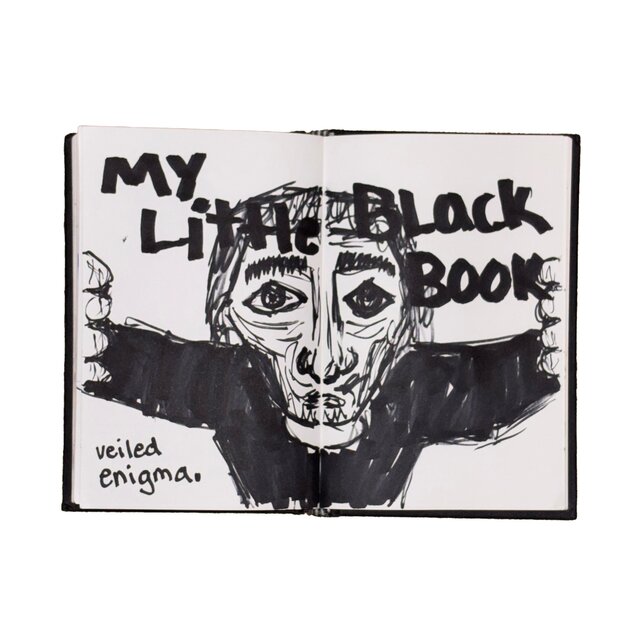 My
Little Black
Book
veiled
enigma.